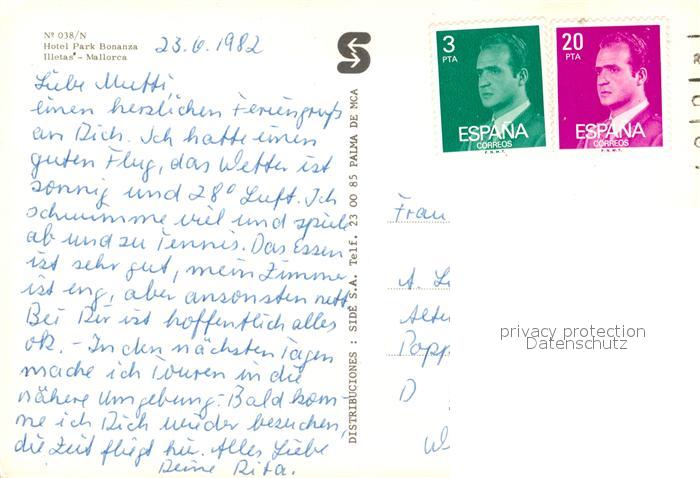 Nº 038/N
Hotel Park Bonanza
Illetas - Mallorca
23.6.1982
Liebe Mutti,
einen herzlichen Feriengruß
an Dich. Ich hatte einen
guten Flug, das Wetter ist
sonnig und 28º Luft. Ich
schwimme viel und spiele
ab und zu Tennis. Das Essen
ist sehr gut, mein Zimmer
ist eng, aber ansonsten nett.
Bei Dir ist hoffentlich alles
ok. - In den nächsten Tagen
mache ich Touren in die
nähere Umgebung. Bald kom-
me ich Dich wieder besuchen,
die Zeit fliegt hier. Alles Liebe
Deine Rita.
DISTRIBUCIONES : SIDE S.A. Telf. 23 00 85 PALMA DE MCA
3
PTA
ESPAÑA
CORREOS
F.N.M.T.
20
PTA
ESPAÑA
CORREOS
F.N.M.T.
Frau
A.
D
privacy protection
Datenschutz